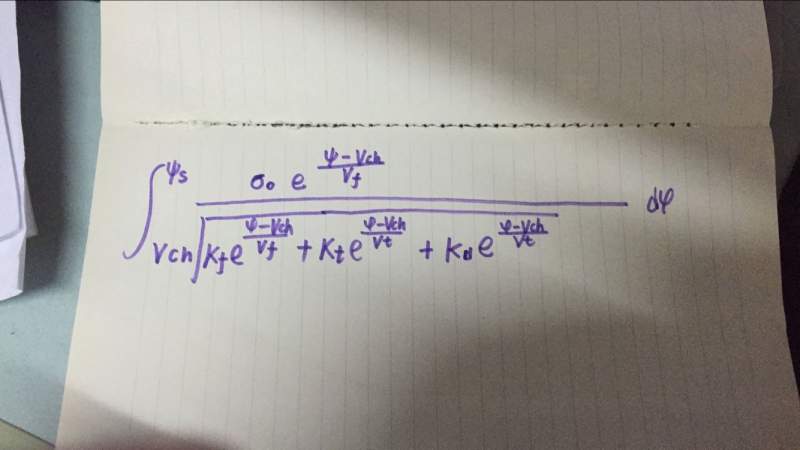 ∫_{Vch}^{ψs} \frac{σ₀ e^{\frac{ψ-Vch}{Vf}}}{\sqrt{K_f e^{\frac{ψ-Vch}{Vf}} + K_t e^{\frac{φ-Vch}{Vt}} + K_d e^{\frac{φ-Vch}{Vt}}}} dφ